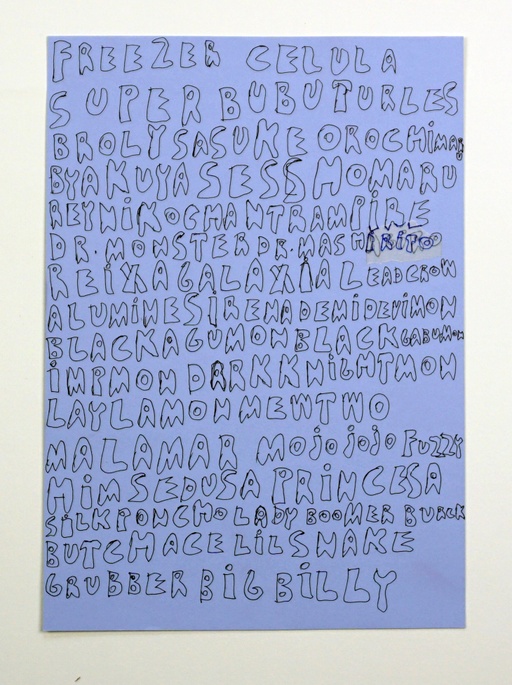 FREEZER CELULA
SUPER BUBUTURLES
BROLY SASUKE OROCHiMAR
BYAKUYA SESSHOMARU
REYNiKOCHANTRAMPiRE
DR. MONSTER DR. MASHiRiTOO
REiXA GALAXiA LEADCROW
ALUMiNESiRENA DEMiDEViMON
BLACKAGUMON BLACKGABUMON
iMPMON DARKKNiGHTMON
LAYLAMON MEWTWO
MALAMAR MOjOjOjO FUZZY
HiM SEDUSA PRiNCESA
SiLK PONCHO LADY BOOMER BURCK
BUTCH ACE LiL SNAKE
GRUBBER BiG BiLLY